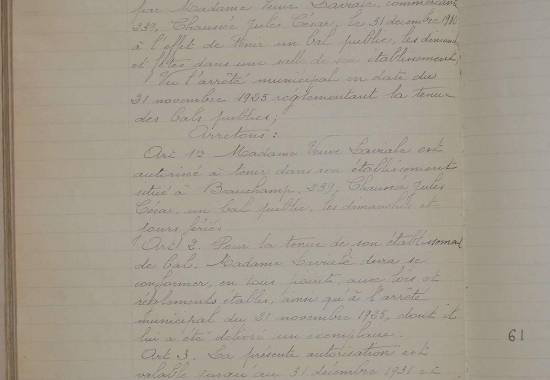 par Madame Veuve commerçante
239, Chaussée Jules César, le 31 décembre
à l'effet de tenir un bal public, les dimanches
et fêtes dans une salle de son établissement
Vu l'arrêté municipal en date du
21 novembre 1925 réglementant la tenue
des bals publics;
Arretons:
Art 1er Madame Veuve est
autorisée à tenir, dans son établissement
situé à Beauchamp, 239, Chaussée Jules
César, un bal public, les dimanches et
jours fériés
Art 2. Pour la tenue de son établissement
de bal, Madame devra se
conformer, en tous points, aux lois et
règlements établis, ainsi qu'à l'arrêté
municipal du 21 novembre 1925, dont il
lui a été délivré un exemplaire.
Art 3. La présente autorisation est
valable jusqu'au 31 décembre 1931 et
61